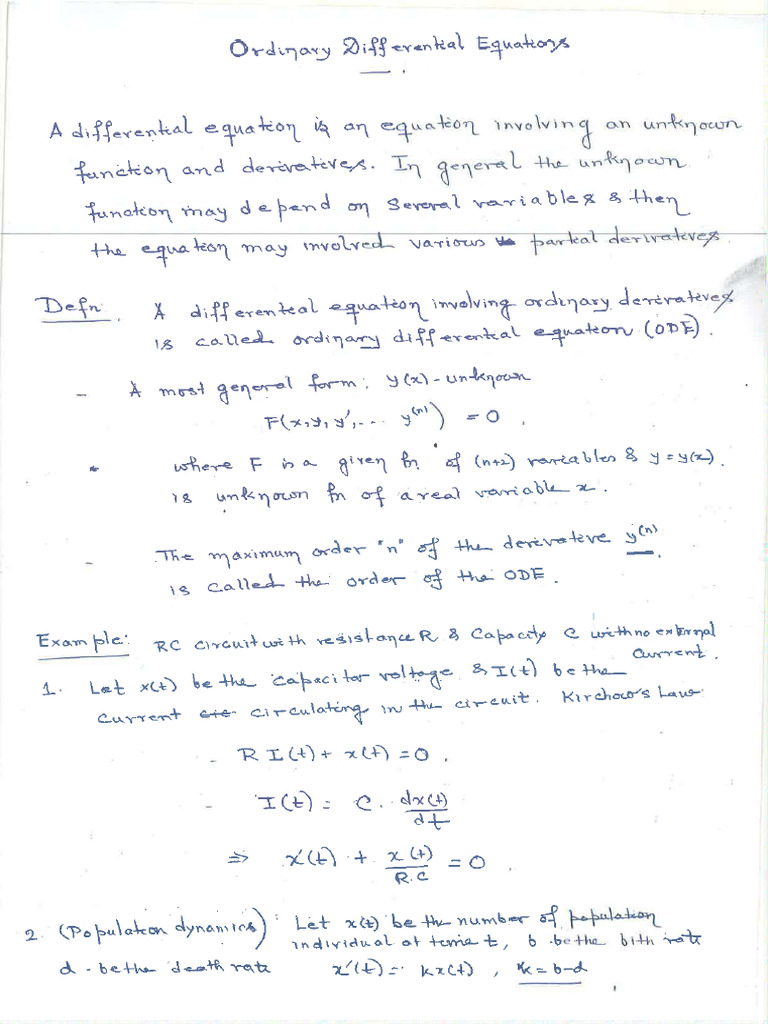 Ordinary Differential Equations
A differential equation is an equation involving an unknown
function and derivatives. In general the unknown
function may depend on several variables & then
the equation may involved various partial derivatives.
Defn. A differential equation involving ordinary derivatives
is called ordinary differential equation (ODE).
- A most general form: y(x) - unknown
F(x, y, y', ... y^(n)) = 0.
where F is a given fn of (n+2) variables & y = y(x).
is unknown fn of a real variable x.
- The maximum order "n" of the derivative y^(n).
is called the order of the ODE.
Example: RC circuit with resistance R & Capacity C with no external
current.
1. Let x(t) be the capacitor voltage & I(t) be the
current circulating in the circuit. Kirchow's Law
- R I(t) + x(t) = 0.
- I(t) = C. dx(t)/dt
⇒ x'(t) + x(t)/R.C = 0
2. (Population dynamics): Let x(t) be the number of population
individual at time t, b - be the bith rate
d - be the death rate x'(t) = kx(t), k = b-d